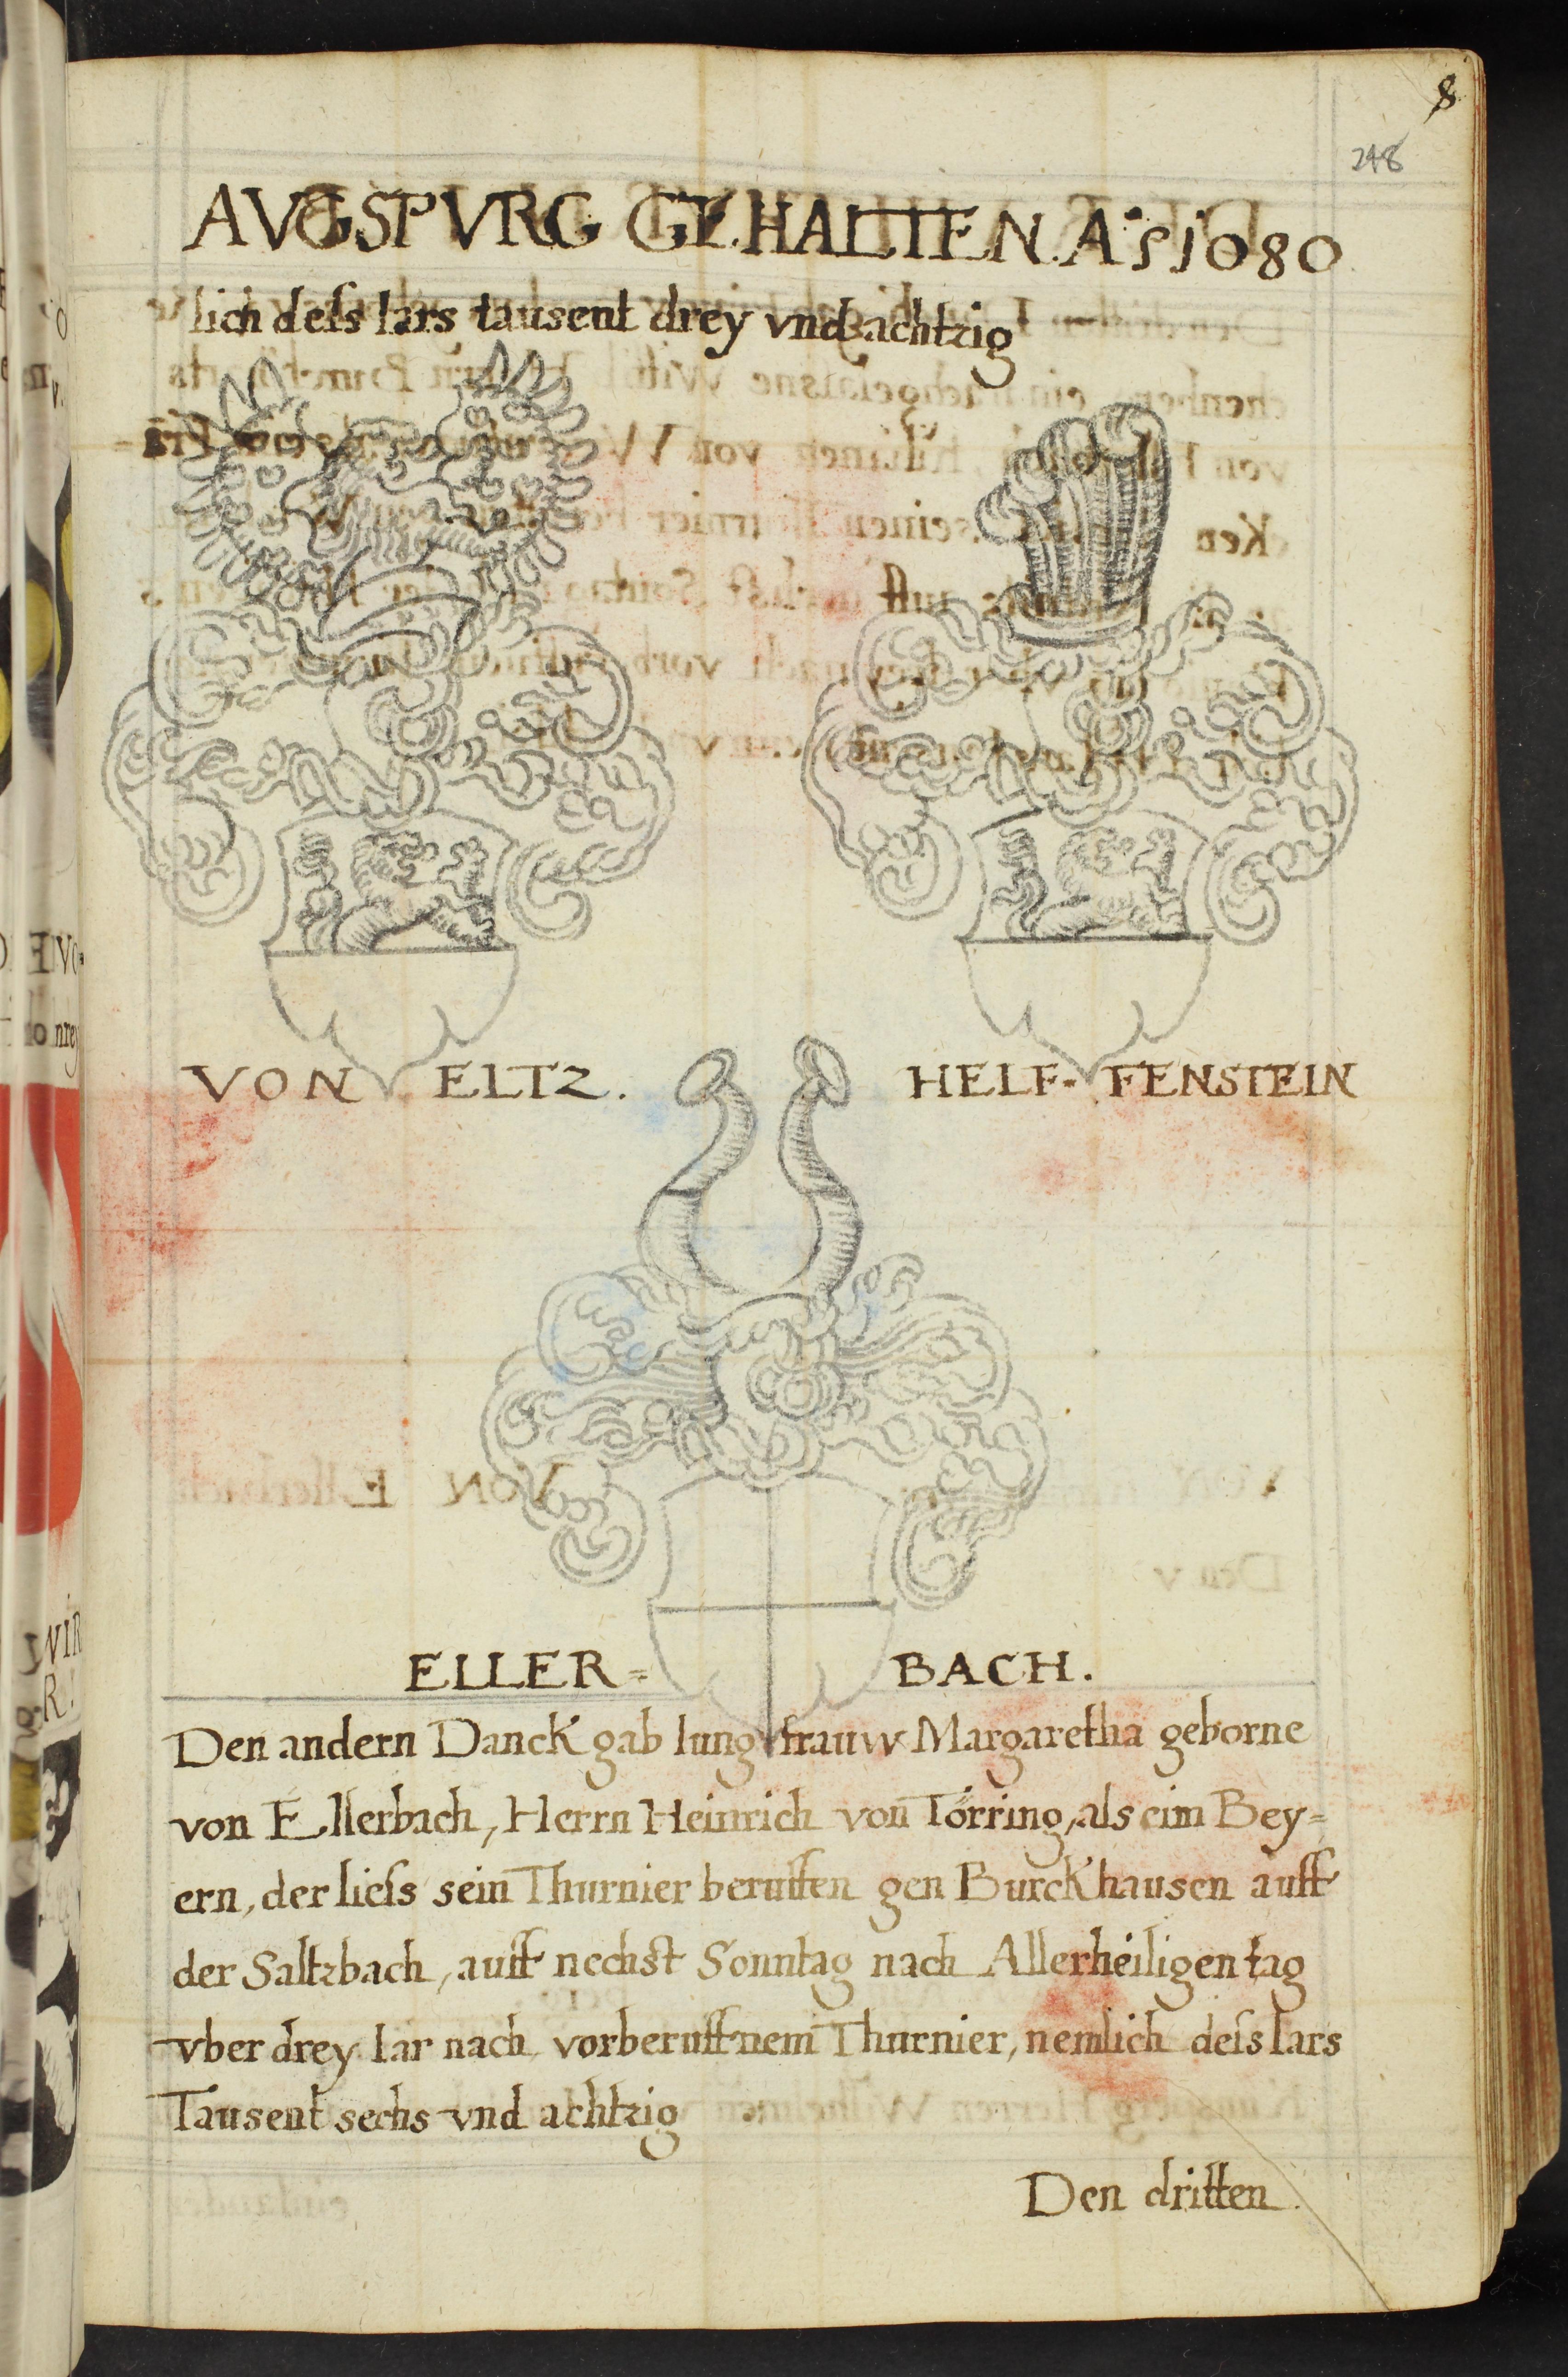 8
248
AVGSPVRG GEHALTEN. A°S 1080
lich deſs Iars tausent drey vnd achtzig
VON ELTZ.
HELF- FENSTEIN
ELLER= BACH.
Den andern Danck gab Iungfrauw Margaretha geborne
von Ellerbach, Herrn Heinrich von Törring, als eim Bey=
ern, der lieſs sein Thurnier beruffen gen Burckhausen auff
der Saltzbach, auff nechst Sonntag nach Allerheiligen tag
vber drey Iar nach vorberuffnem Thurnier, nemlich deſs Iars
Tausent sechs vnd achtzig
Den dritten